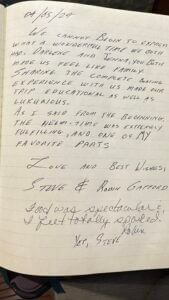 04/05/24
WE CANNOT BEGIN TO EXPRESS
WHAT A WONDERFUL TIME WE BOTH
HAD. DARLENE AND JENNA, YOU BOTH
MADE US FEEL LIKE FAMILY.
SHARING THE COMPLETE
EXPERIENCE WITH US MADE OUR
TRIP EDUCATIONAL AS WELL AS
LUXURIOUS.
AS I SAID FROM THE BEGINNING,
THE HELM-TIME WAS EXTREMELY
FULFILLING, AND ONE OF MY
FAVORITE PARTS
LOVE AND BEST WISHES,
STEVE & ROBIN
Food was spectacular &
I felt totally spoiled.
Robin
Yes, STEVE